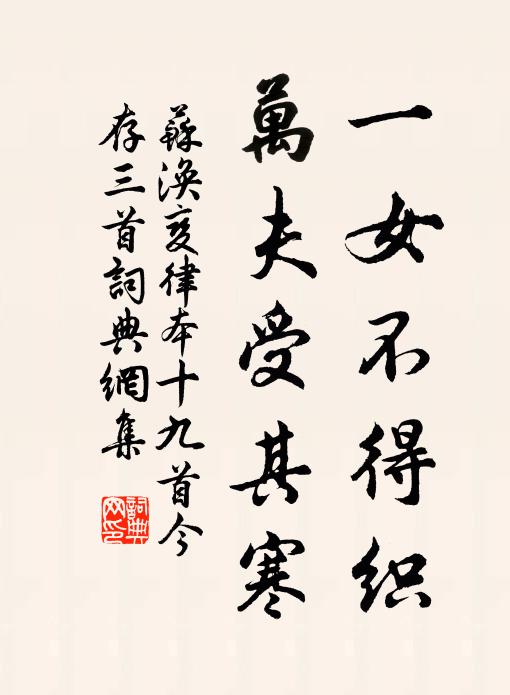 一女不得织
萬夫受其寒
蘇渙變律本十九首今
存三首詞典網集
詞典
网印